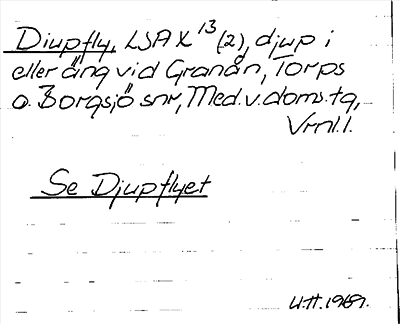 Djupfly, LSA X 13 (2), djup i
eller äng vid Granån, Torps
o. Borgsjö snr, Med. v. doms. tg,
Vrnl. l.
Se Djupflyet
U.H. 1969.